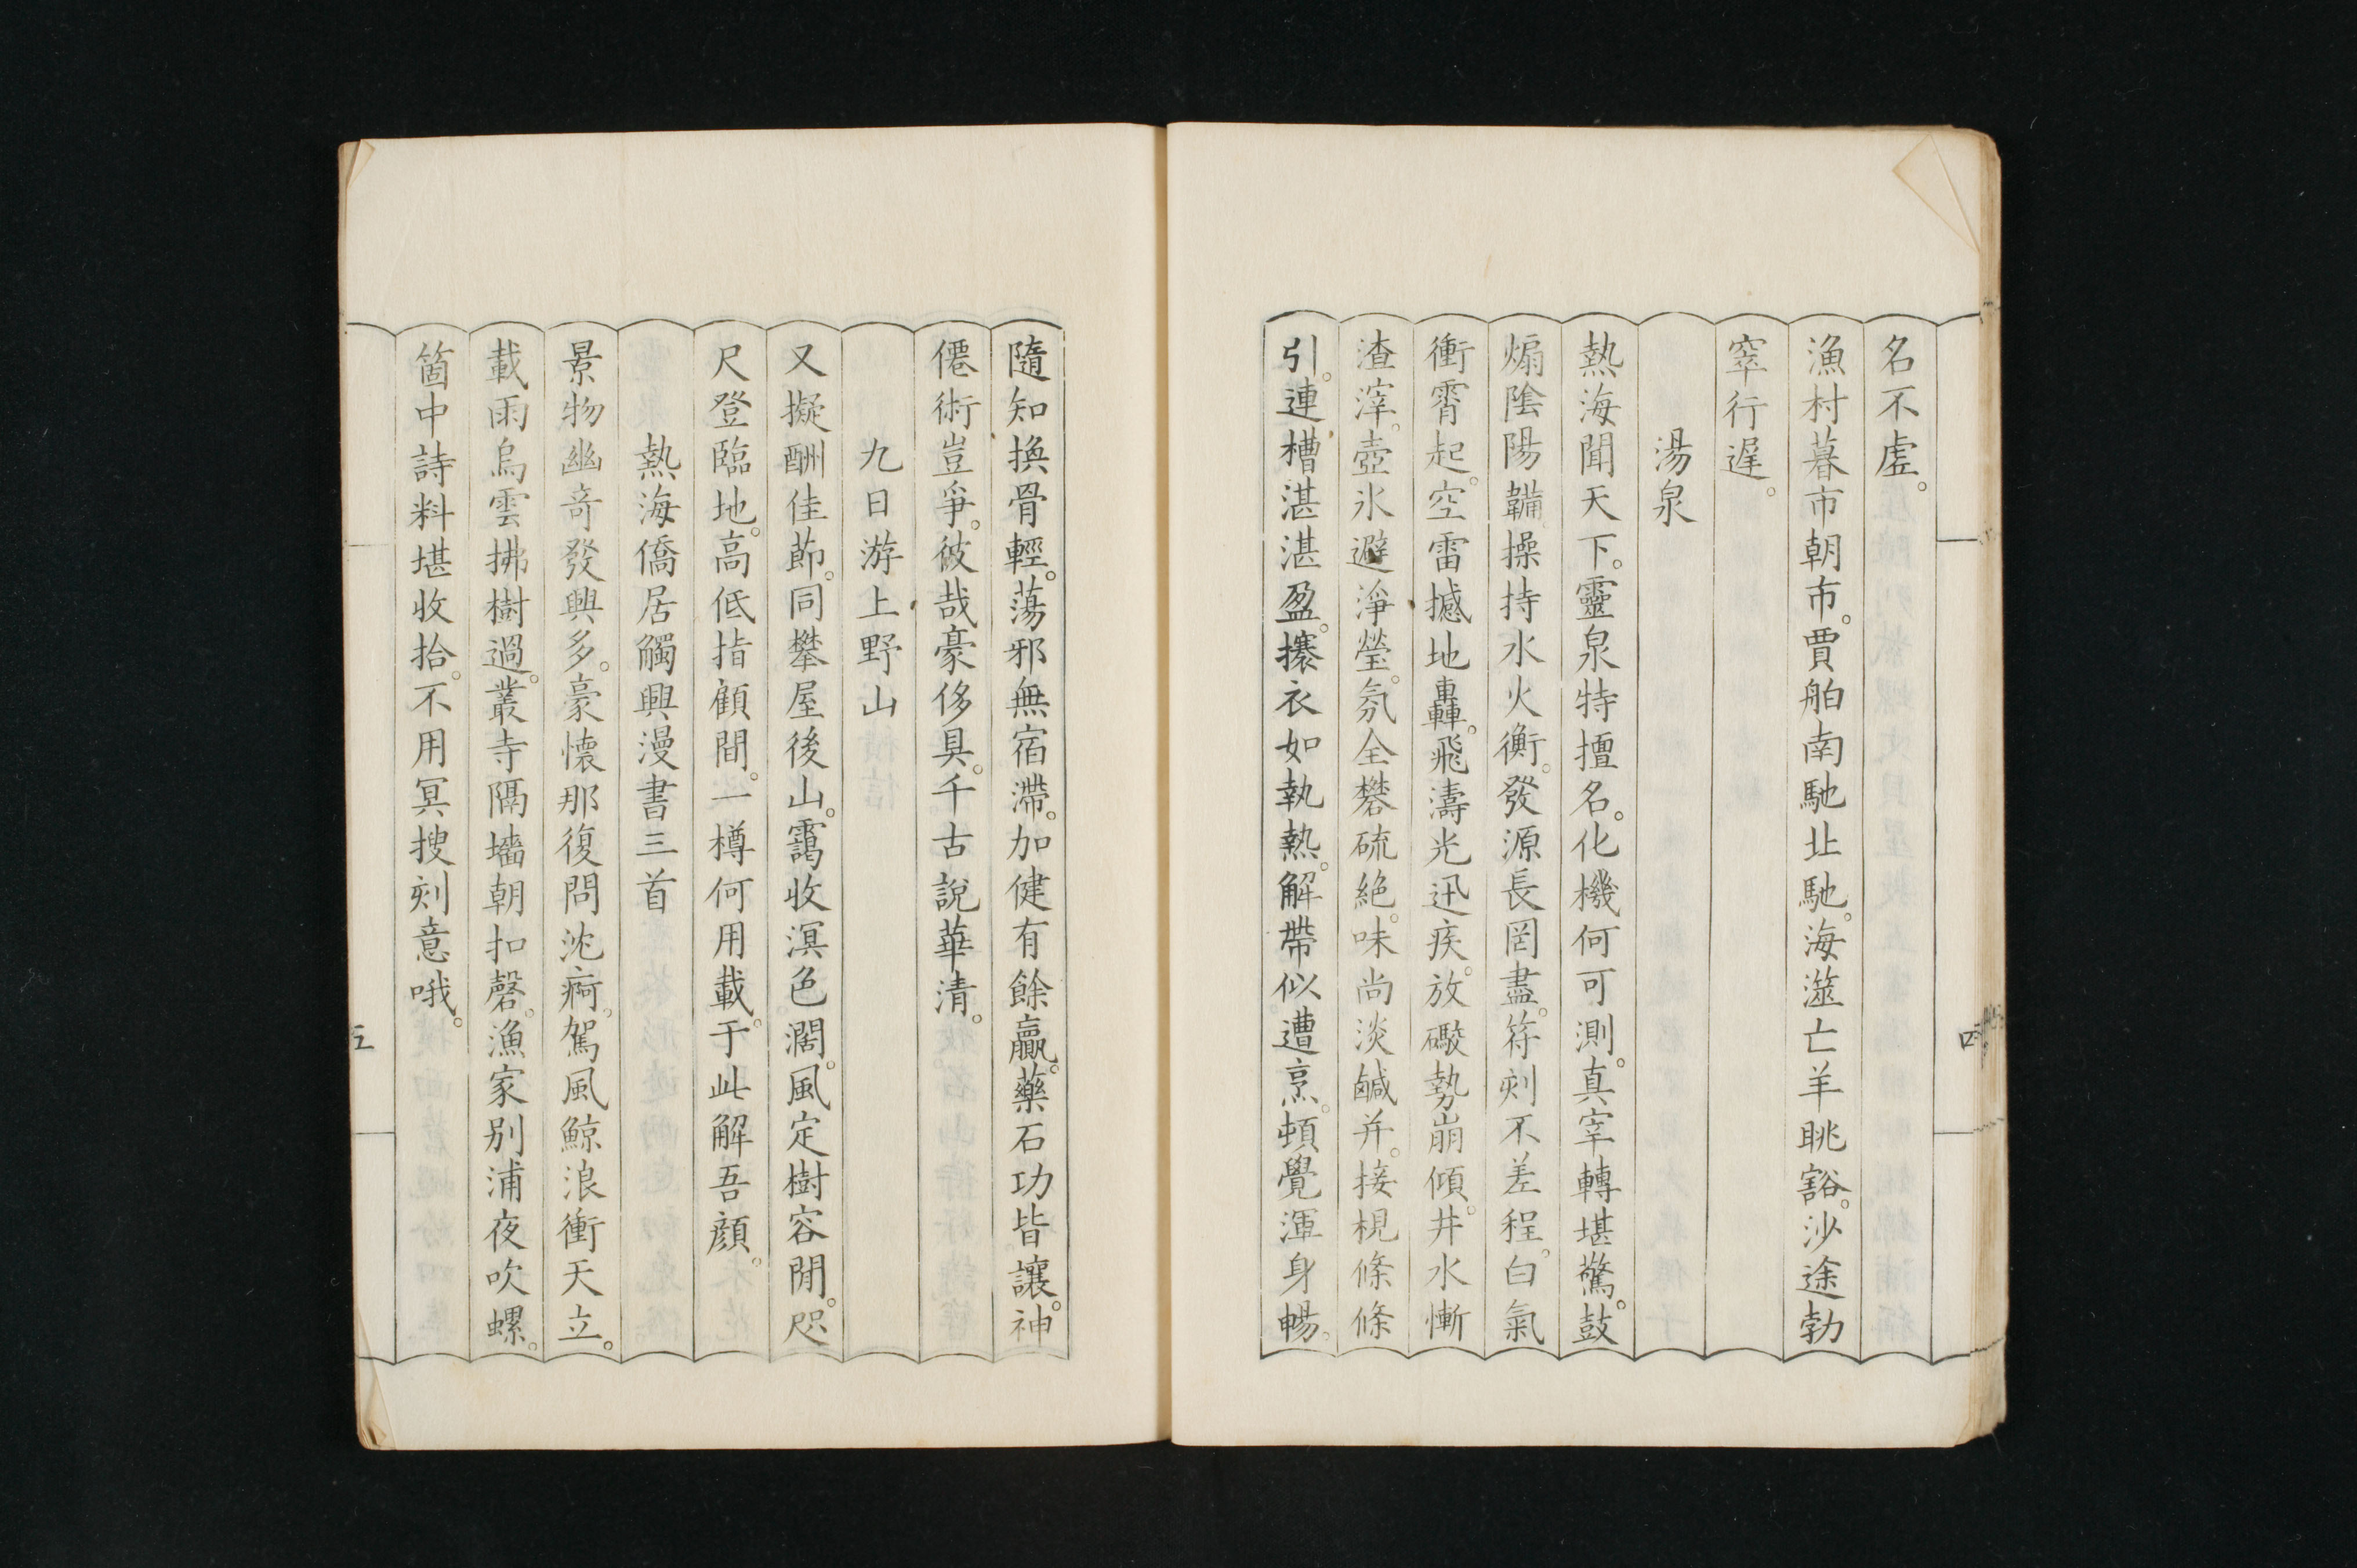 名不虛。
漁村暮市朝市。賈舶南馳北馳。海澨亡羊眺豁。沙途勃
窣行遲。
湯泉
熱海聞天下。靈泉特擅名。化機何可測。真宰轉堪驚。鼓
煽陰陽鞴。操持水火衡。發源長罔盡。符刻不差程。白氣
衝霄起。空雷撼地轟。飛濤光迅疾。放礮勢崩傾。井水慚
渣滓。壺氷避淨瑩。氛全礬硫絶。味尚淡鹹并。接梘條條
引。連槽湛湛盈。攘衣如執熱。解帶似遭烹。頓覺渾身暢。
四
隨知換骨輕。蕩邪無宿滯。加健有餘贏。藥石功皆讓。神
僊術豈爭。彼哉豪侈具。千古說華清。
九日游上野山
又擬酬佳節。同攀屋後山。靄收溟色濶。風定樹容閒。咫
尺登臨地。高低指顧間。一樽何用載。于此解吾顔。
熱海僑居觸興漫書三首
景物幽奇發興多。豪懷那復問沈痾。駕風鯨浪衝天立。
載雨烏雲拂樹過。叢寺隔墻朝扣磬。漁家別浦夜吹螺。
箇中詩料堪收拾。不用冥搜刻意哦。
五